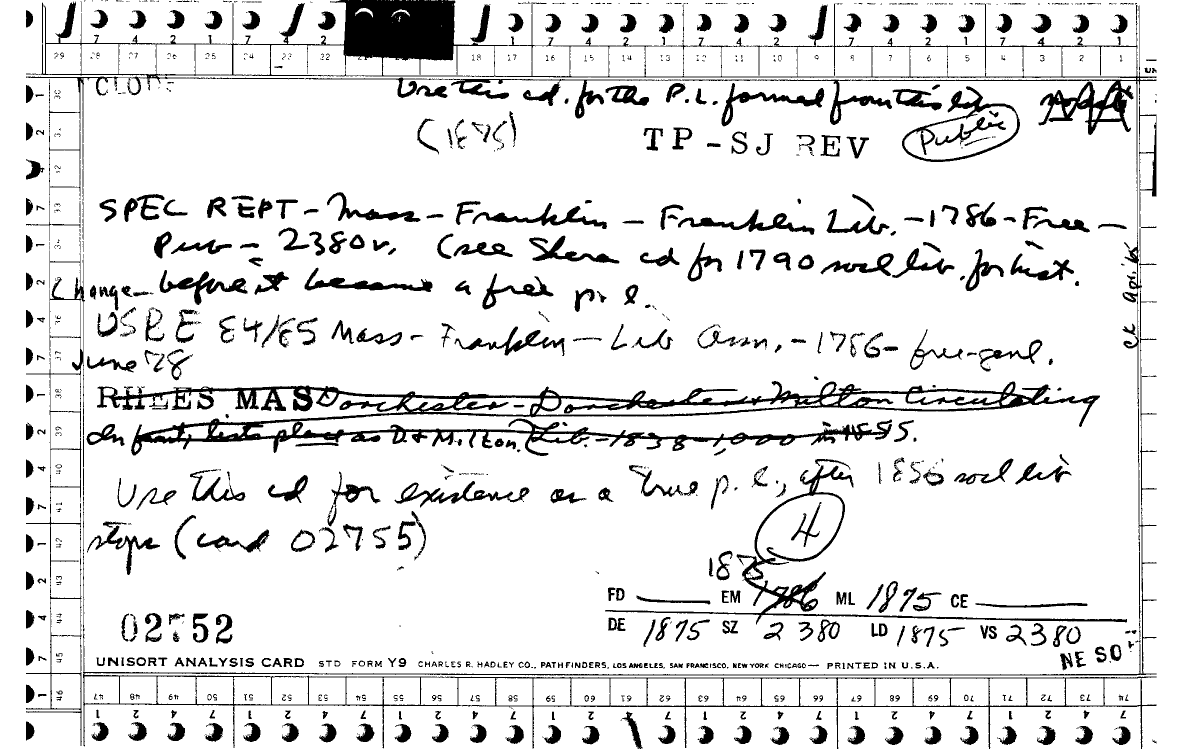 7 4 2 1 7 4 2 18 1 7 4 2 1 7 4 2 1 7 4 2 1
29 28 27 26 25 24 23 22 18 17 16 15 14 13 12 11 10 9 8 7 6 5 4 3 2 1
Use this cd. for the P.L. formed from this lib
(1875)
TP-SJ REV
Public
SPEC REPT - Mass - Franklin - Franklin Lib. - 1786 - Free -
Pub - 2380v. (see Shera cd for 1790 socl lib. for hist.
Change - before it became a free p. l.
USBE 84/85 Mass - Franklin - Lib Assn. - 1786 - free-genl.
June 28
RHEES MAS Dorchester - Dorchester & Milton Circulating
In fact, lists place as D. & Milton. (Lib. - 1838 - 1,000 in 1855.
Use this cd for existence as a true p. l., after 1856 socl lib
stops (card 02755)
4
1875
FD EM 1786 ML 1875 CE
DE 1875 SZ 2380 LD 1875 VS 2380
02752
NE SO
UNISORT ANALYSIS CARD STD FORM Y9 CHARLES R. HADLEY CO., PATHFINDERS, LOS ANGELES, SAN FRANCISCO, NEW YORK CHICAGO — PRINTED IN U.S.A.
47 48 49 50 51 52 53 54 55 56 57 58 59 60 61 62 63 64 65 66 67 68 69 70 71 72 73 74
1 2 4 7 1 2 4 7 1 2 4 7 1 2 4 7 1 2 4 7 1 2 4 7 1 2 4 7